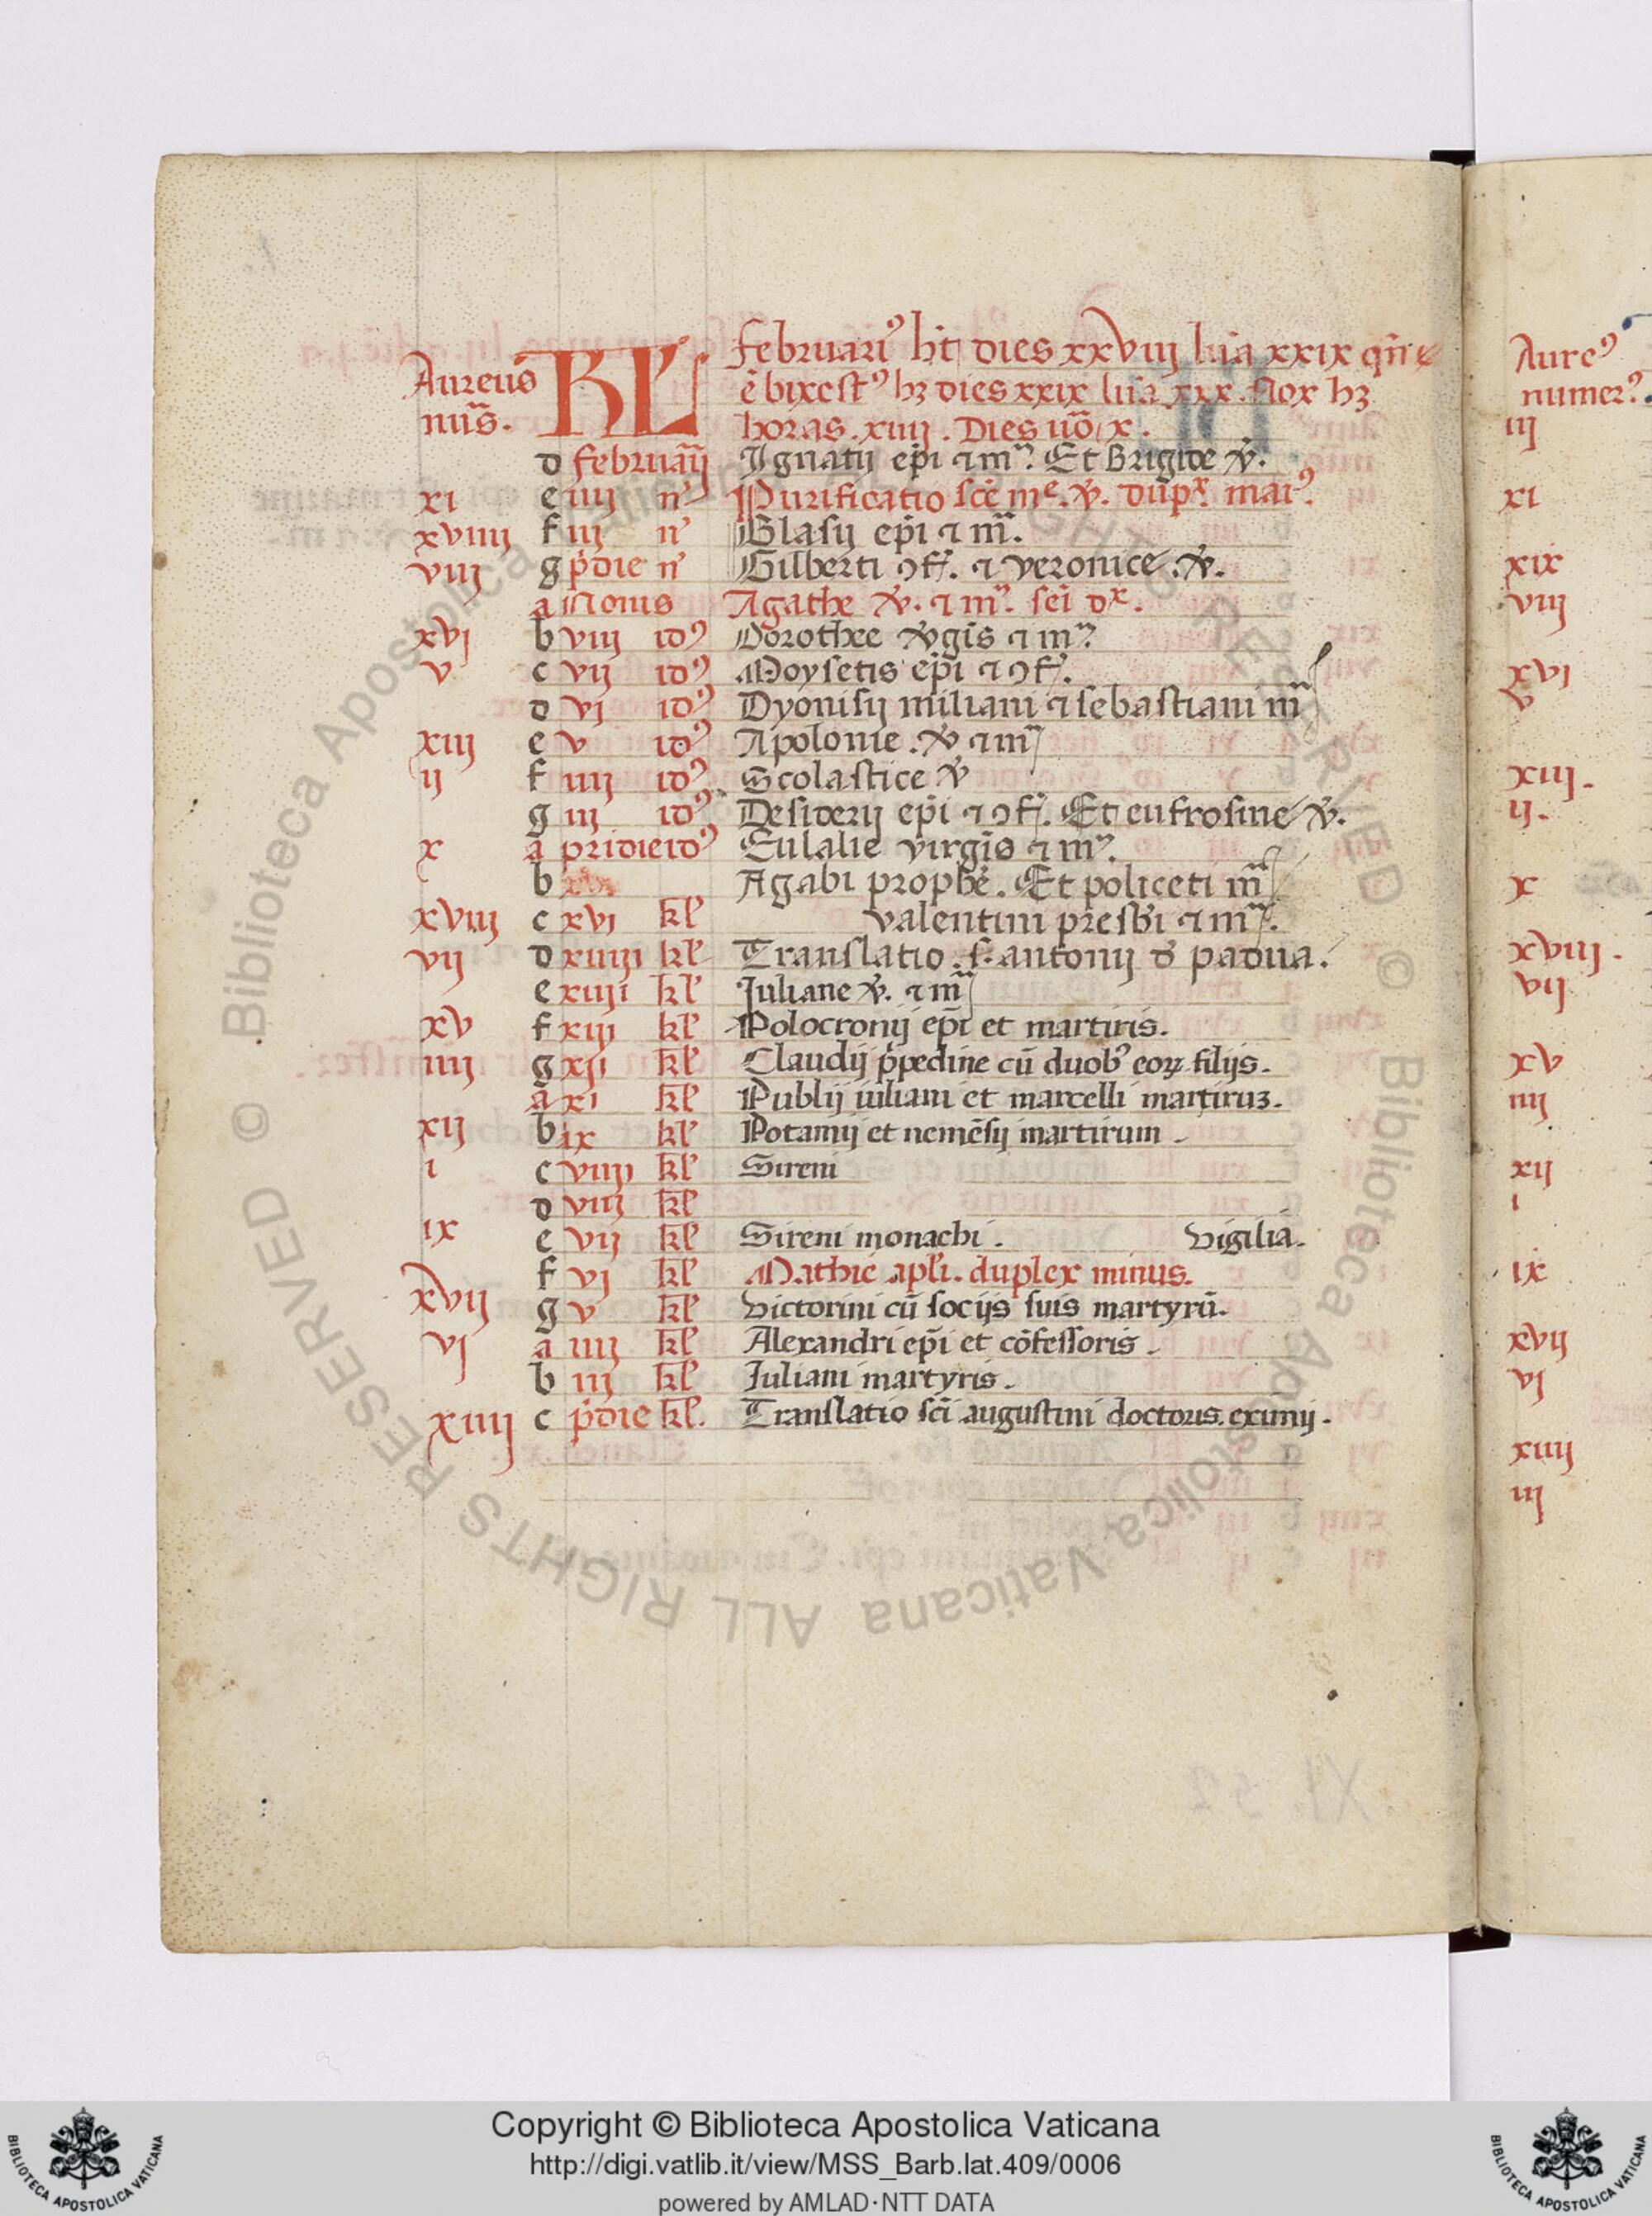 februariꝰ ht dies xxviij lūa xxix qn̄ e
Aureus KL ē bixestꝰ hꝫ dies xxix lūa xxx. Nox hꝫ
nūs. horas. xiiij. Dies uō x.
d februarij Ignatij epī ⁊ m̄. Et Brigide v̄.
xi e iiij n̄ Purificatio scē me. v̄. dūpx maiꝰ.
xviiij f iij n̄ Blasij epī ⁊ m̄.
viij g pͥdie n̄ Gilberti ꝯf. ⁊ veronice. v̄.
a Nonis Agathe v̄. ⁊ m̄. sei dx.
xvj b viij idꝰ Dorothee v̄gis ⁊ m̄
v c vij idꝰ Moysetis epī ⁊ ꝯf.
d vj idꝰ Dyonisij miliani ⁊ sebastiani m̄
xiij e v idꝰ Apolonie. v̄ ⁊ m̄
ij f iiij idꝰ Scolastice v̄
g iij idꝰ Desiderij epī ⁊ ꝯf. Et eufrosine v̄.
x a pridie idꝰ Eulalie virgis ⁊ m̄.
b Agabi prophē. Et policeti m̄
xviij c xvj kl̄ valentini presbi ⁊ m̄.
vij d xiiiij kl̄ Translatio. s. antonij d̄ padua.
e xiiij kl̄ Juliane v̄. ⁊ m̄
xv f xiij kl̄ Polocronij epī et martiris.
iiij g xij kl̄ Claudij p̄pedine cū duobꝰ eoꝝ filijs.
a xi kl̄ Publij iuliani et marcelli martiruꝫ.
xij b ix kl̄ Potamij et nemēsij martirum.
i c viiij kl̄ Sireni
d viij kl̄
ix e vij kl̄ Sireni monachi. Vigilia.
f vj kl̄ Mathie apl̄i. duplex minus.
xvij g v kl̄ Victorini cū socijs suis martyrū.
vj a iiij kl̄ Alexandri epī et cōfessoris.
b iij kl̄ Juliani martyris.
xiiij c pͥdie kl̄. Translatio scī augustini doctoris. eximij.
Aureꝰ
numerꝰ.
iij
xi
xix
viij
xvj
v
xiij.
ij.
x
xviij.
vij
xv
iiij
xij
i
ix
xvij
vj
xiiij
iij
© Biblioteca Apostolica Vaticana ALL RIGHTS RESERVED © Biblioteca Apostolica Vaticana ALL RIGHTS RESERVED
Copyright © Biblioteca Apostolica Vaticana
http://digi.vatlib.it/view/MSS_Barb.lat.409/0006
powered by AMLAD·NTT DATA
BIBLIOTECA APOSTOLICA VATICANA
BIBLIOTECA APOSTOLICA VATICANA